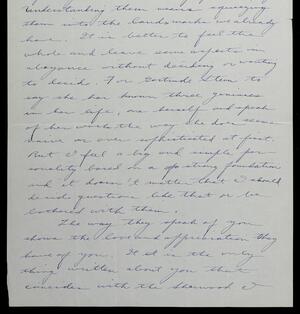 understanding them means squeezing
them into the landmarks we already
have. It is better to feel the
whole and leave some aspects in
abeyance without deciding or waiting
to decide. For Gertrude Stein to
say she has known three geniuses
in her life, one herself and speak
of her works the way she does seems
naive or over sophisticated at first.
But I feel a big and simple per-
sonality based on a strong foundation
and it doesn't matter that I should
decide questions like that or be
bothered with them.
The way they speak of you
shows the love and appreciation they
have of you. It is the only
thing written about you that
coincides with the Sherwood I